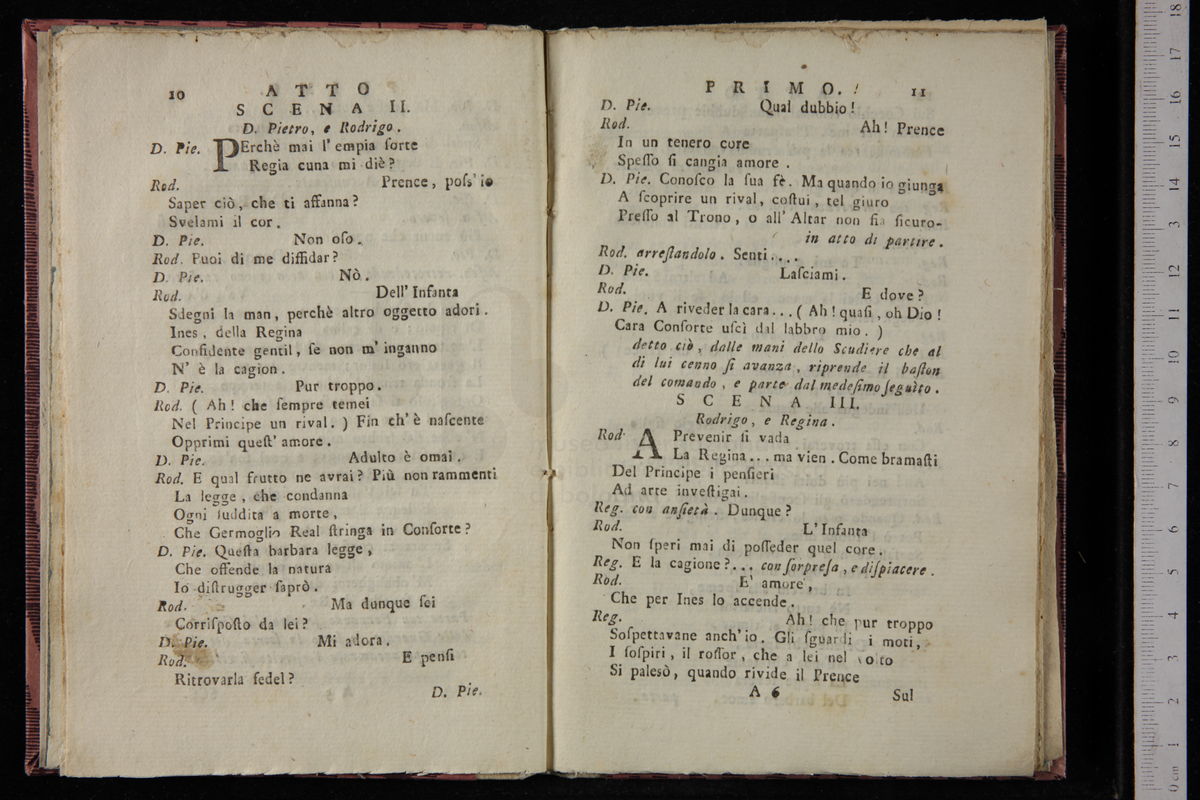 10 ATTO
SCENA II.
D. Pietro, e Rodrigo.
D. Pie. PErchè mai l' empia ſorte
Regia cuna mi diè?
Rod. Prence, poſs' io
Saper ciò, che ti affanna?
Svelami il cor.
D. Pie. Non oſo.
Rod. Puoi di me diffidar?
D. Pie. Nò.
Rod. Dell' Infanta
Sdegni la man, perchè altro oggetto adori.
Ines, della Regina
Confidente gentil, ſe non m' inganno
N' è la cagion.
D. Pie. Pur troppo.
Rod. ( Ah! che ſempre temei
Nel Principe un rival. ) Fin ch' è naſcente
Opprimi queſt' amore.
D. Pie. Adulto è omai.
Rod. E qual frutto ne avrai? Più non rammenti
La legge, che condanna
Ogni ſuddita a morte,
Che Germoglio Real ſtringa in Conſorte?
D. Pie. Queſta barbara legge,
Che offende la natura
Io diſtrugger ſaprò.
Rod. Ma dunque ſei
Corriſpoſto da lei?
D. Pie. Mi adora.
Rod. E penſi
Ritrovarla fedel?
D. Pie.
PRIMO. 11
D. Pie. Qual dubbio!
Rod. Ah! Prence
In un tenero core
Speſſo ſi cangia amore.
D. Pie. Conoſco la ſua fè. Ma quando io giunga
A ſcoprire un rival, coſtui, tel giuro
Preſſo al Trono, o all' Altar non ſia ſicuro-
in atto di partire.
Rod. arreſtandolo. Senti....
D. Pie. Laſciami.
Rod. E dove?
D. Pie. A riveder la cara... ( Ah! quaſi, oh Dio!
Cara Conſorte uſcì dal labbro mio. )
detto ciò, dalle mani dello Scudiere che al
di lui cenno ſi avanza, riprende il baſton
del comando, e parte dal medeſimo ſeguìto.
SCENA III.
Rodrigo, e Regina.
Rod. A Prevenir ſi vada
La Regina... ma vien. Come bramaſti
Del Principe i penſieri
Ad arte inveſtigai.
Reg. con anſietà. Dunque?
Rod. L' Infanta
Non ſperi mai di poſſeder quel core.
Reg. E la cagione?... con ſorpreſa, e diſpiacere.
Rod. E' amore,
Che per Ines lo accende.
Reg. Ah! che pur troppo
Soſpettavane anch' io. Gli ſguardi i moti,
I ſoſpiri, il roſſor, che a lei nel volto
Si palesò, quando rivide il Prence
A 6 Sul